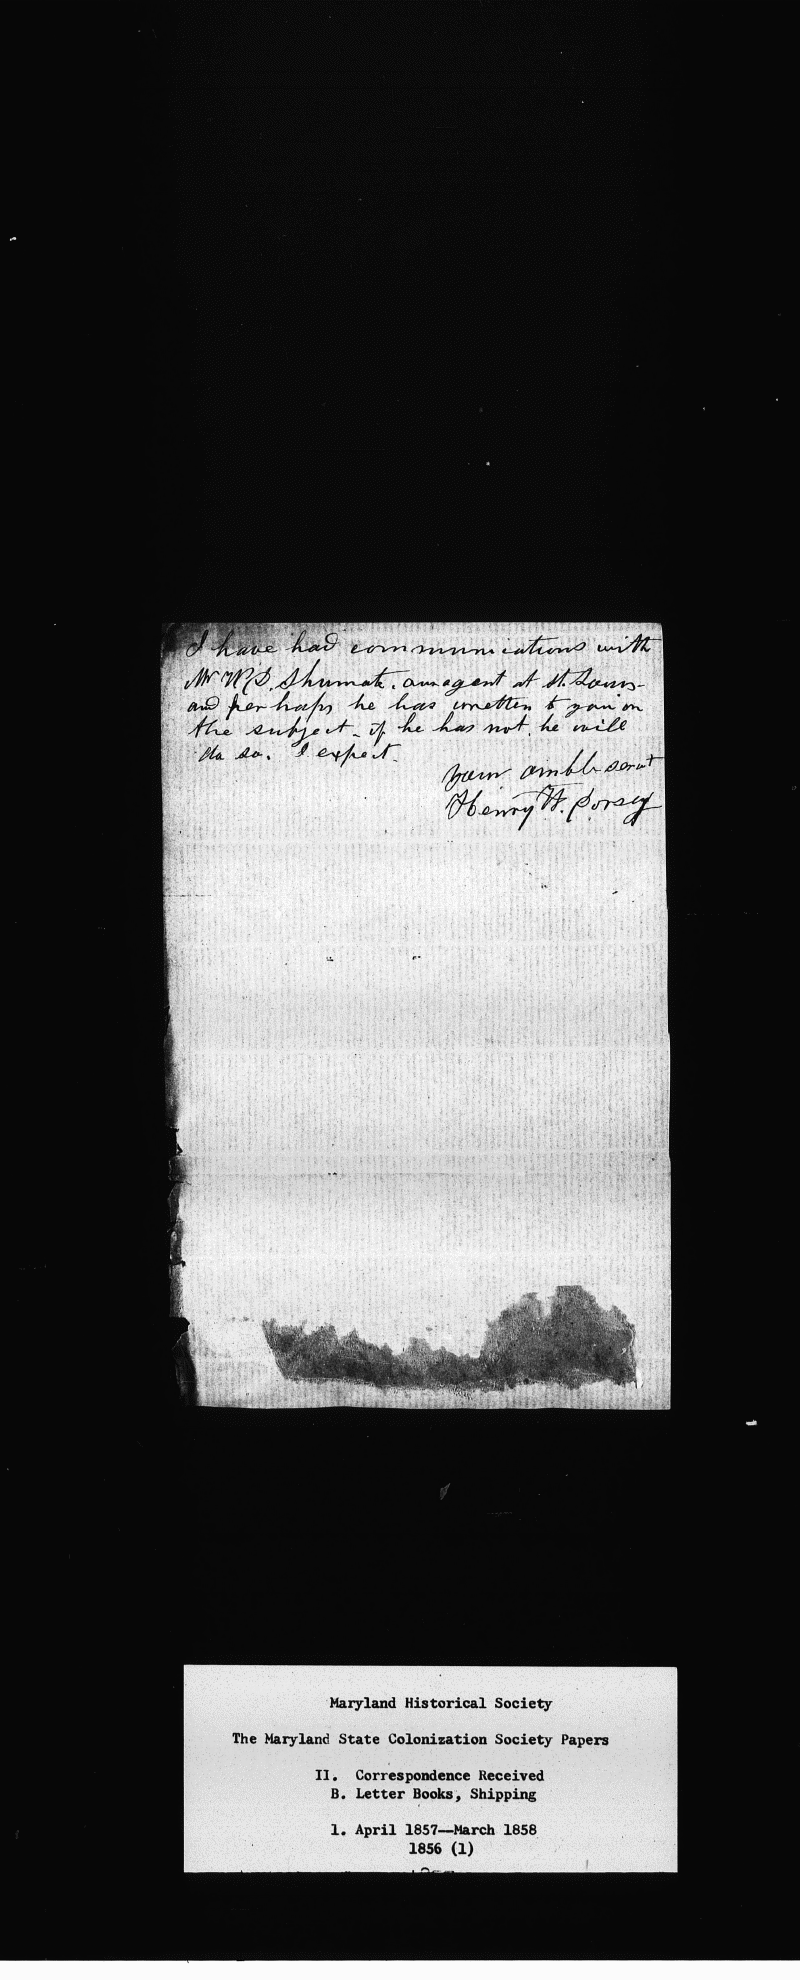 I have had communications with
Mr W. D. Shumate. an agent at St. Louis-
and perhaps he has wretten to you on
the subject - if he has not, he will
do so. I expect.
your omble servt
Henry W. Dorsey
Maryland Historical Society
The Maryland State Colonization Society Papers
II. Correspondence Received
B. Letter Books, Shipping
1. April 1857--March 1858
1856 (1)